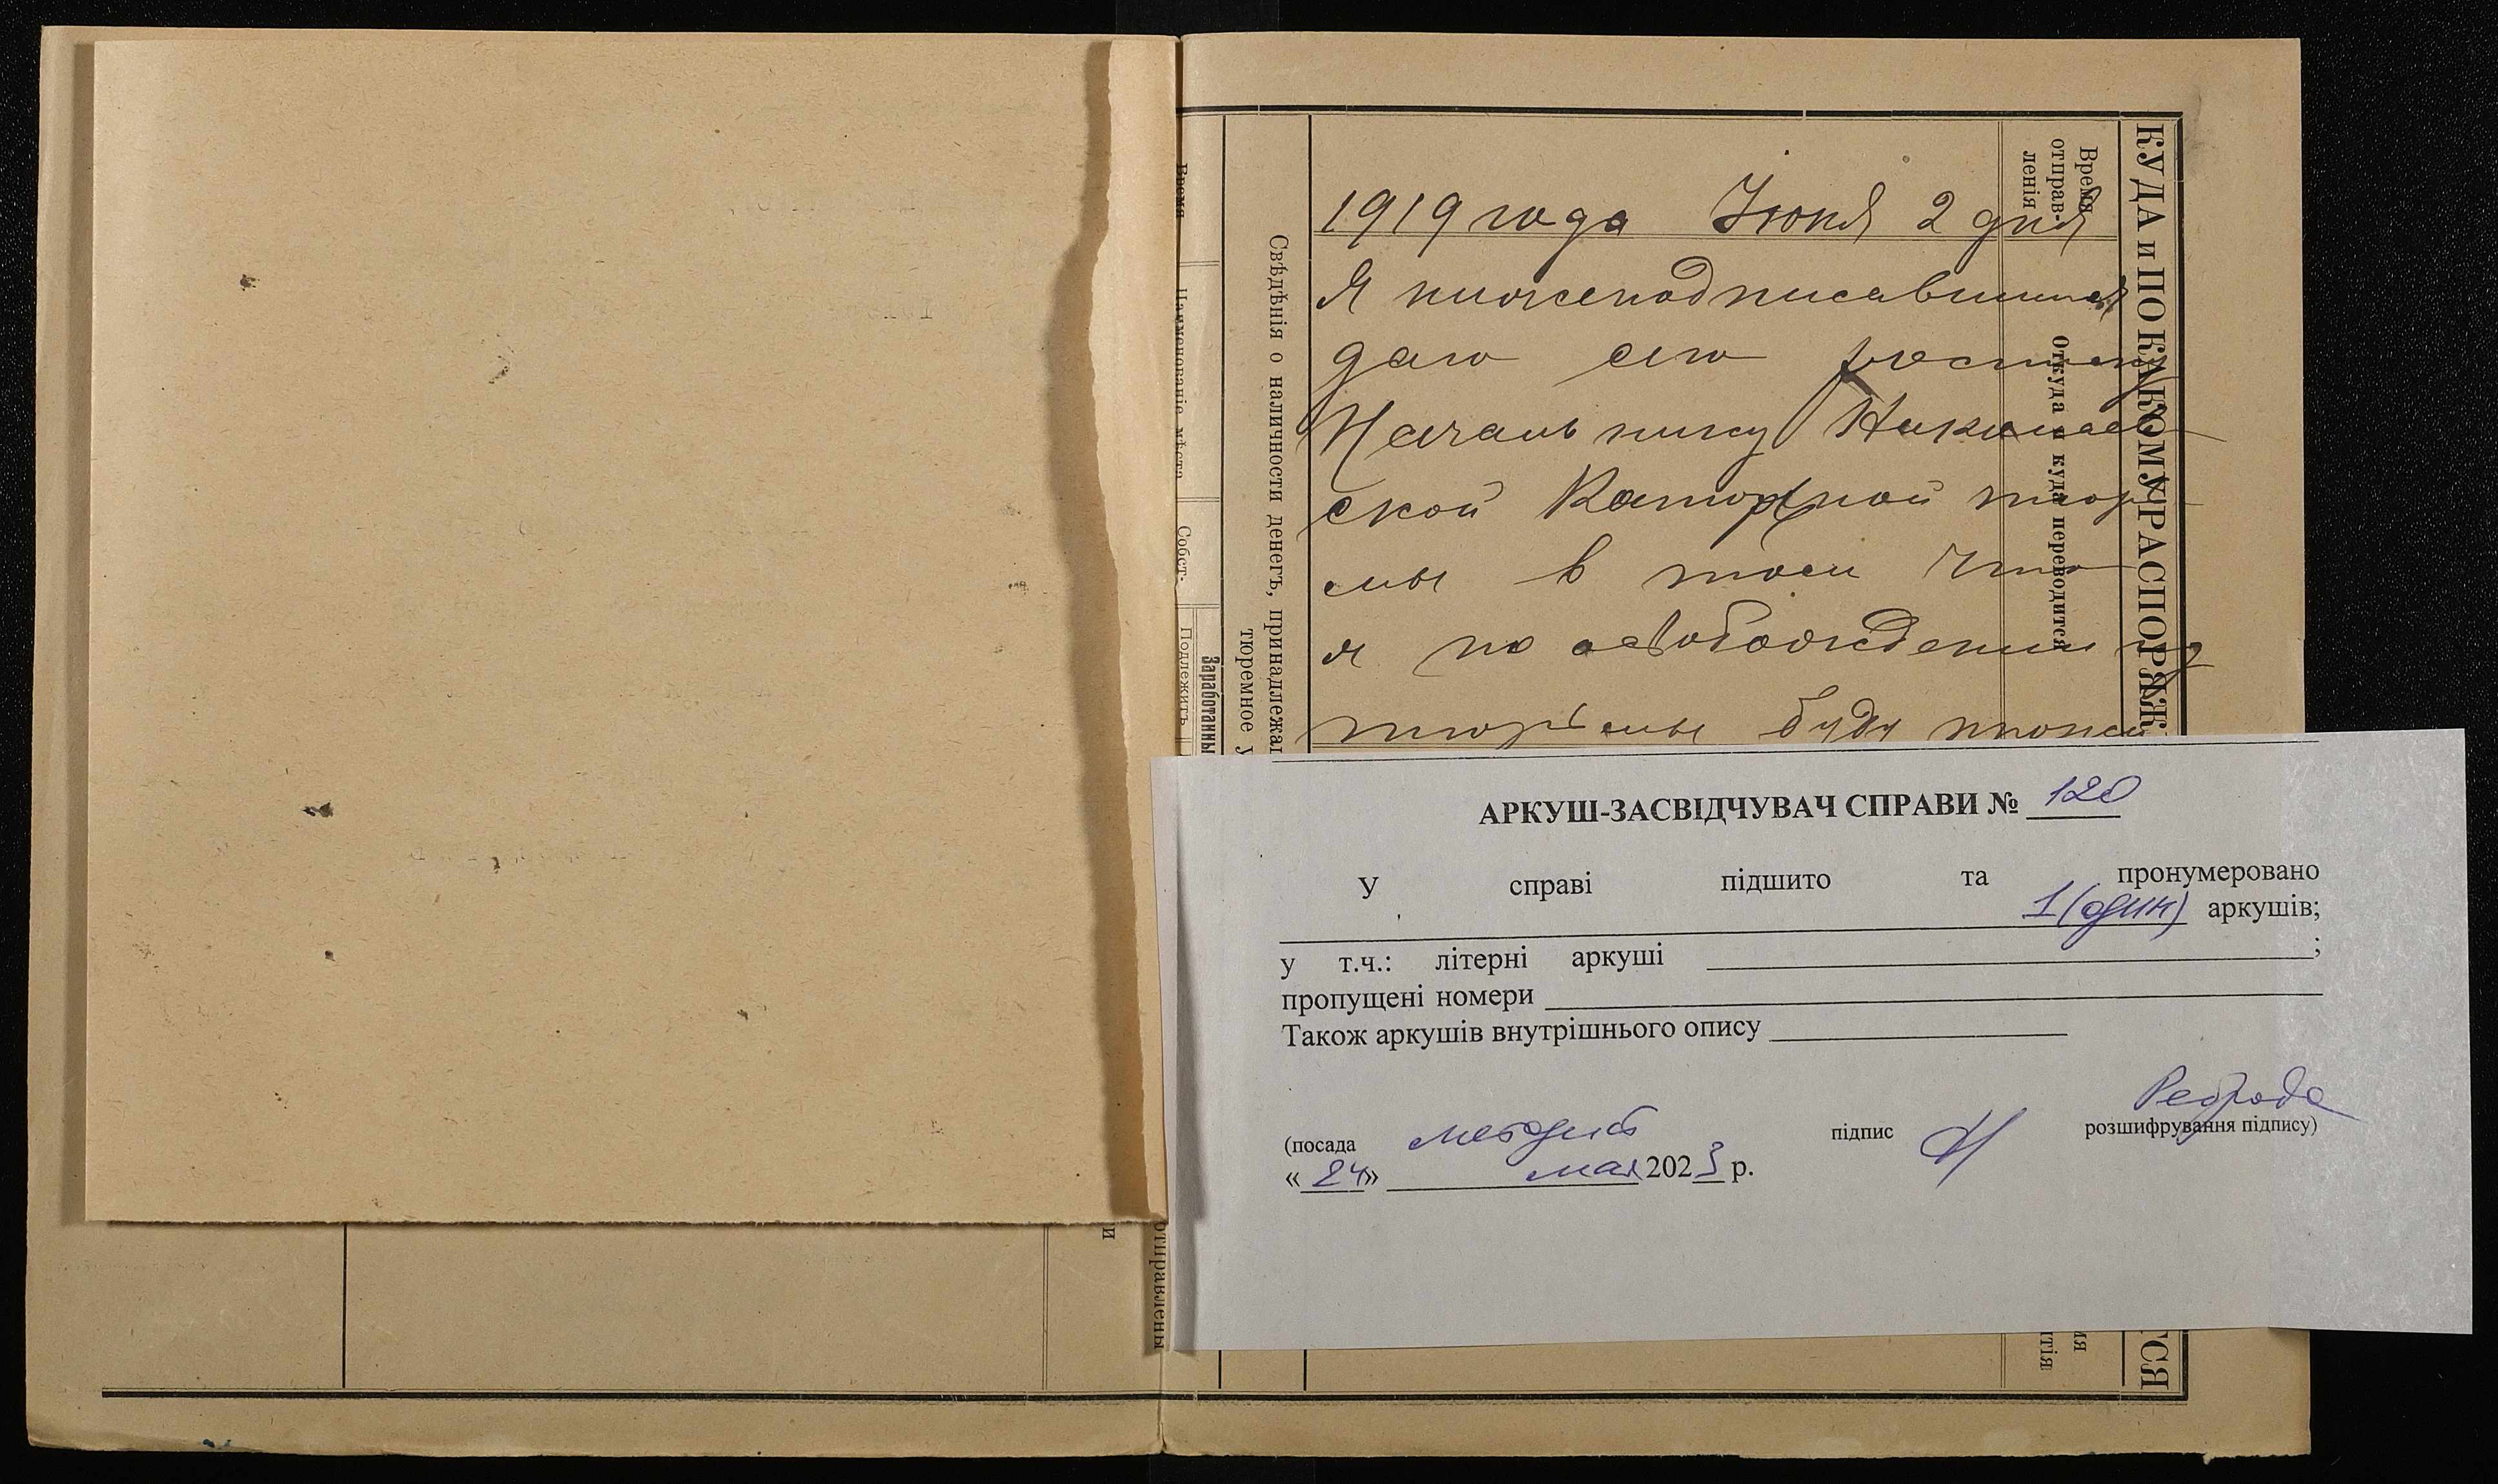 1919 года Июня 2 дня
Я нижеподписавшийся
даю сию росписку
Начальнику Николаев-
ской Каторжной тюрь-
мы в том что
я по освобождении из
тюрьмы буду
КУДА и ПО КАКОМУ РАСПОРЯЖ
ТСЯ
Время
отправ-
ленія
Откуда и куда переводится
Свѣдѣнія о наличности денегъ, принадлежа
тюремное у
Время
Наименованіе мѣста
Собст.
Заработанны
Подлежитъ
отправлены
и
ия
тія
АРКУШ-ЗАСВІДЧУВАЧ СПРАВИ № 120
У справі підшито та пронумеровано
1 (один) аркушів;
у т.ч.: літерні аркуші ;
пропущені номери
Також аркушів внутрішнього опису
(посада методист підпис Реброва розшифрування підпису)
« 24» мая 2023 р.